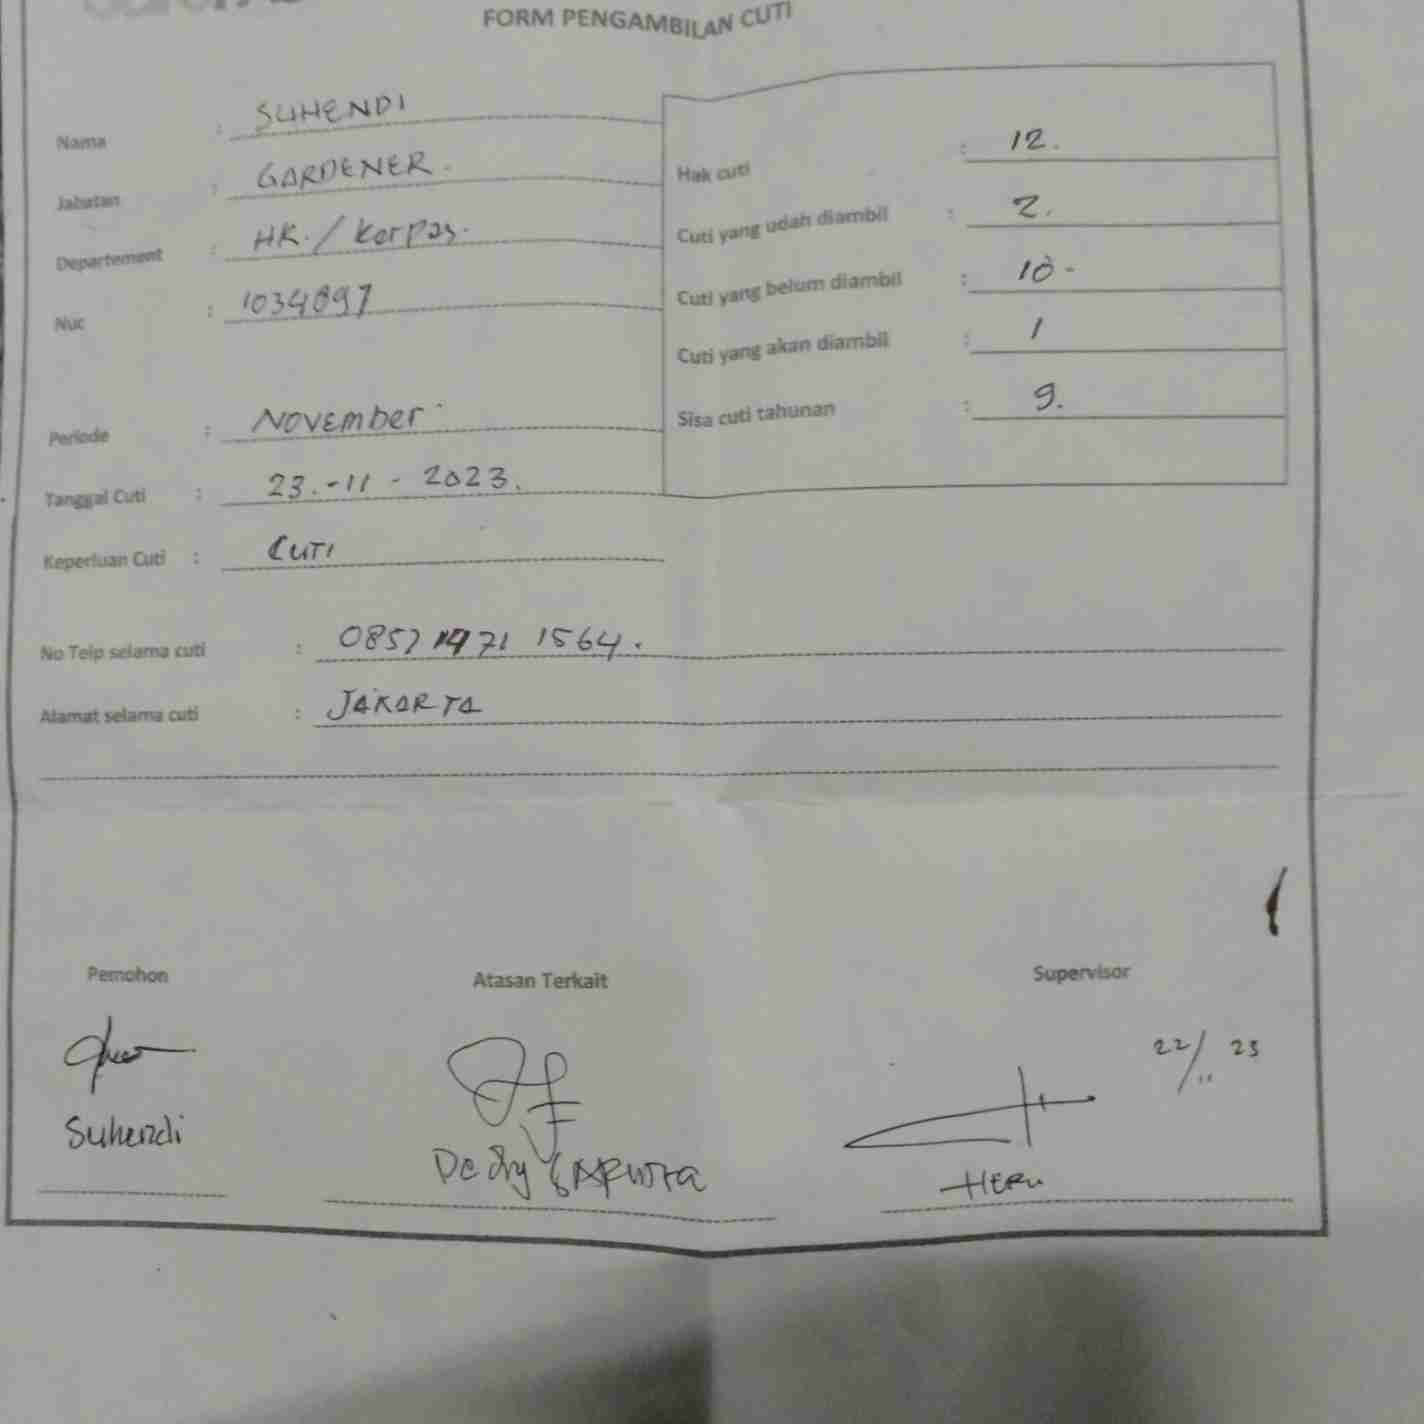 FORM PENGAMBILAN CUTI
Nama : SUHENDI
Jabatan : GARDENER.
Departement : HK./Korpas.
Nuc : 1034897
Hak cuti : 12.
Cuti yang udah diambil : 2.
Cuti yang belum diambil : 10-
Cuti yang akan diambil : 1
Sisa cuti tahunan : 9.
Periode : NOVEmber
Tanggal Cuti : 23.-11-2023.
Keperluan Cuti : CUTI
No Telp selama cuti : 0857 1971 1564.
Alamat selama cuti : JAKARTA
Pemohon Atasan Terkait Supervisor
22/11 23
Suhendi Dedy SAPUTRA HERU